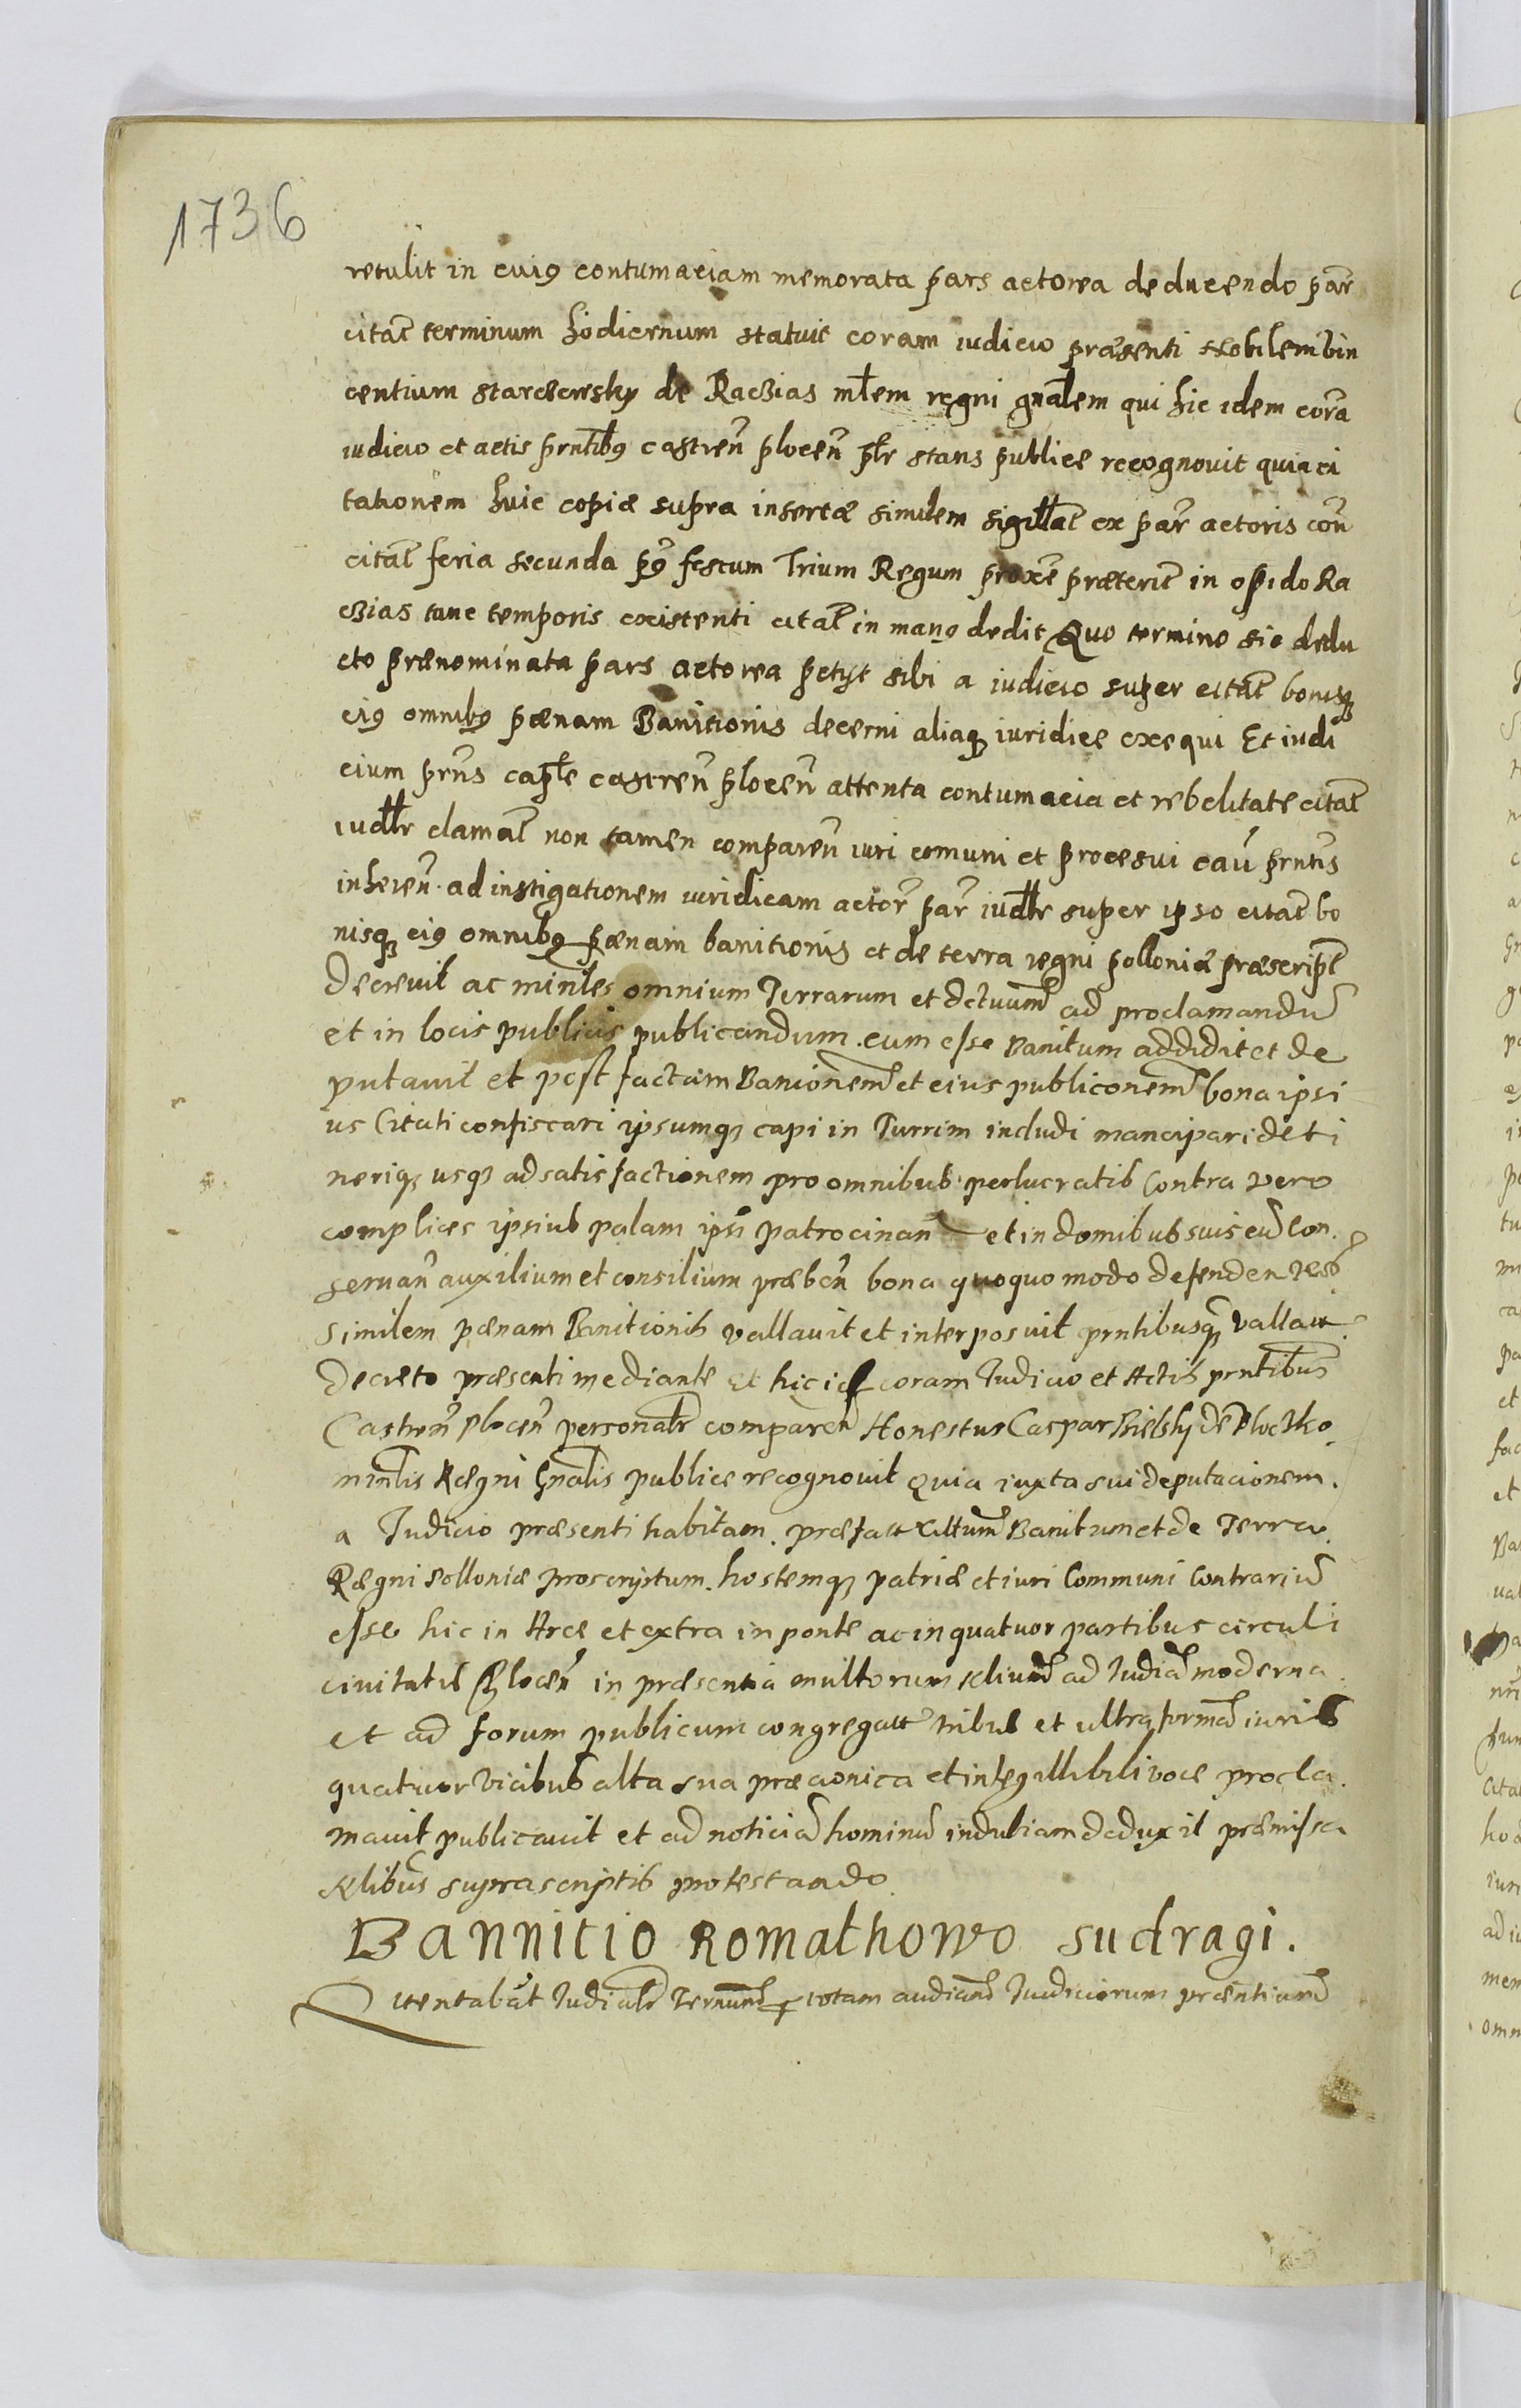 1736
retulit in cuig contumaciam memorata pars actorea deducendo par
citat terminum hodiernum statuit coram iudicio præsenti Nobilem Vin
centium Starczewsky de Raczias mlem regni gnalem qui hic idem cora
iudicio et actis prntibg castren plocen plr stans publice recognovit quia ci
tationem huic copiæ supra insertæ similem sigillat ex par actoris con
citat feria secunda pg festum Trium Regum proxe præterit in opido Ra
czias tunc temporis existenti citat in mang dedit Quo termino sic dedu
cto prænominata pars actorea petyt sibi a iudicio super citat bonisq
eig omnibg pænam Banitionis decerni aliaq iuridice exequi Et iudi
cium prns caple castren plocen attenta contumacia et rebelitate citat
iudllr clamat non tamen comparen iuri comuni et procesui cau prntis
inheren ad instigationem iuridicam actor par iudllr super ipso citat bo
nisq eig omnibg pænam banitionis et de terra regni polloniæ præscript
decrevit ac mintles omnium Terrarum et dctuum ad proclamandu
et in locis publicis publicandum eum esse Banitum addidit et de
putavit et post factam Banionem et eius publiconem bona ipsi
us Citati confiscari ipsumq capi in Turrim includi mancipari deti
neriq usq ad satisfactionem pro omnibus perlucratis Contra vero
complices ipsius palam ipsi patrocinan et in domibus suis eu con
servan auxilium et consilium præben bona quoquo modo defenden
similem pænam Banitionis vallavit et interposuit prntibusq vallat
decreto præsenti mediante Et hic id coram Iudicio et Actis prntibus
Castren Plocen personalr comparen Honestus Caspar Bielsky de Ploczko
mintlis Rægni Gnalis publice recognovit quia iuxta sui deputacionem
a Iudicio præsenti habitam præfatt Cittum Banitum et de Terra
Rægni Polloniæ proscriptum hostemq patriæ et iuri Communi Contrariu
esse hic in Arce et extra in ponte ac in quatuor partibus circuli
civitatis Plocen in præsentia multorum Nliu ad Iudicia moderna
et ad forum publicum congregatt tribus et ultra formam iuris
quatuor vicibus alta sua præconica et intelligibili voce procla
mavit publicavit et ad noticia hominu indubiam deduxit præmissa
Nlibus suprascriptis protestando
Bannitio Romathowo sudragi.
Attentabat Iudicialr Ternum p totam audiam Iudiciorum præntium